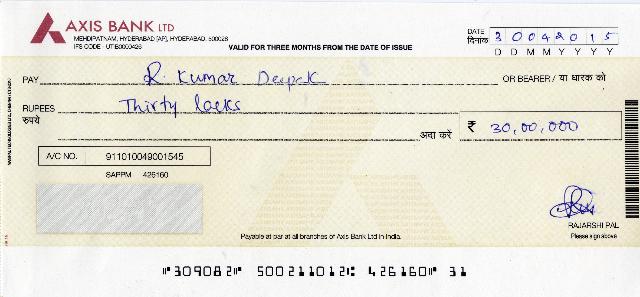 AXIS BANK LTD
MEHDIPATNAM, HYDERABAD [AP], HYDERABAD, 500028
IFS CODE - UTIB0000426
VALID FOR THREE MONTHS FROM THE DATE OF ISSUE
DATE दिनांक 30042015
D D M M Y Y Y Y
PAY R. Kumar Deepak OR BEARER / या धारक को
RUPEES Thirty lacks
रुपये
अदा करें ₹ 30,00,000
A/C NO. 911010049001545
SAPPM 426160
RAJARSHI PAL
Please sign above
Payable at par at all branches of Axis Bank Ltd in India.
⑈309082⑈ 500211012⑆ 426160⑈ 31